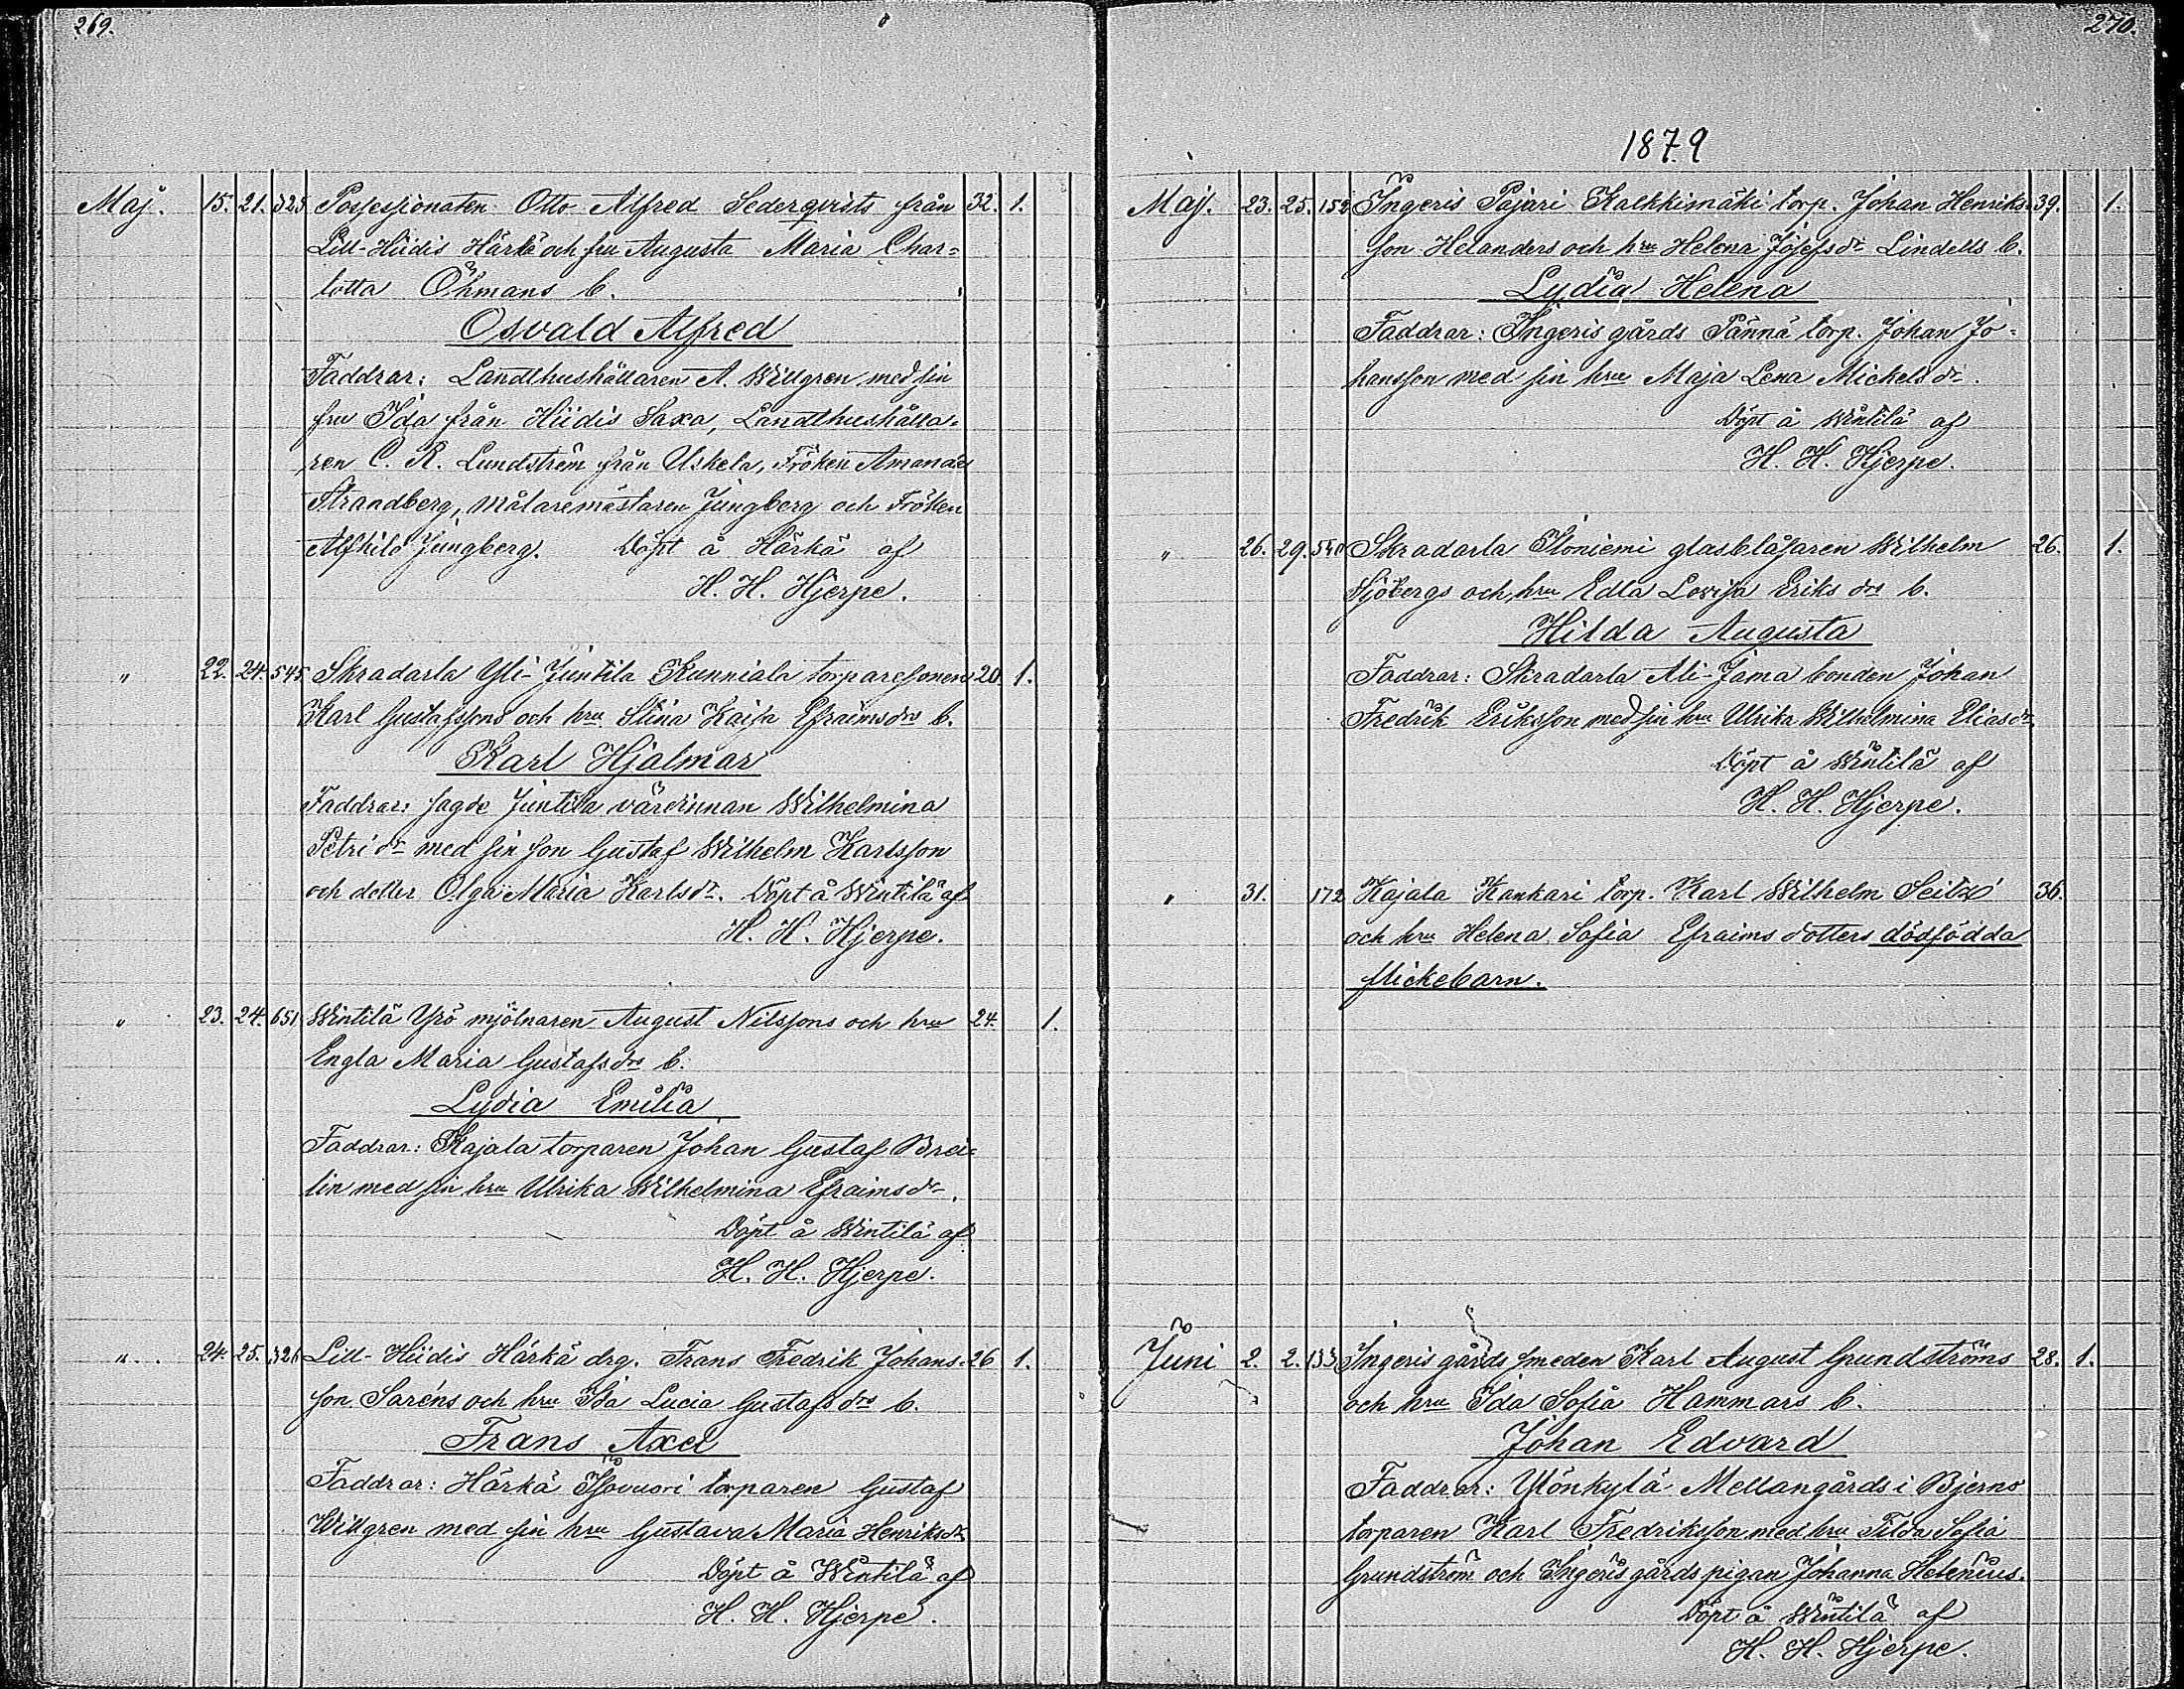 269.
Maj. 15. 21. 325 Possessionaten Otto Alfred Sederqvists från 32. 1.
Lill-Hiidis Härkä och fru Augusta Maria Char=
lotta Öhmans b.
Osvald Alfred
Faddrar: Landthushållaren A. Willgren med sin
fru Ida från Hiidis Saxa, Landthushålla=
ren C. R. Lundström från Uskela, Fröken Amanda
Strandberg, Målaremästaren Jungberg och Fröken
Alfhild Jungberg. Döpt å Härkä af
H. H. Hjerpe.
" 22. 24. 545. Skradarla Yli-Juntila Kunniala torparesonen 20. 1.
Karl Gustafssons och hru Stina Kaisa Efraimsdrs b.
Karl Hjalmar
Faddrar: sagde Juntila värdinnan Wilhelmina
Petridr med sin son Gustaf Wilhelm Karlsson
och dotter Olga Maria Karlsdr. Döpt å Wintilä af
H. H. Hjerpe.
" 23. 24. 651 Wintilä Yrö mjölnaren August Nilssons och hru 24. 1.
Engla Maria Gustafsdrs b.
Lydia Emilia
Faddrar: Kajala torparen Johan Gustaf Brei=
lin med sin hru Ulrika Wilhelmina Efraimsdr.
Döpt å Wintilä af
H. H. Hjerpe.
" 24. 25. 326 Lill-Hiidis Härkä drg. Frans Fredrik Johans= 26 1.
son Saréns och hru Ida Lucia Gustafsdrs b.
Frans Axel
Faddrar: Härkä Isovuori torparen Gustaf
Willgren med sin hru Gustava Maria Henriksdr.
Döpt å Wintilä af
H. H. Hjerpe.
270.
1879
Maj. 23. 25. 152 Ingeris Pajari Kalkkimäki torp. Johan Henriks= 39. 1.
son Helanders och hru Helena Josefsdr Lindells b.
Lydia Helena
Faddrar: Ingeris gårds Pännä torp. Johan Jo=
hansson med sin hru Maja Lena Mickelsdr.
Döpt å Wintilä af
H. H. Hjerpe.
" 26. 29. 540 Skradarla Iloniemi glasblåsaren Wilhelm 26. 1.
Sjöbergs och hru Edla Lovisa Eriksdrs b.
Hilda Augusta
Faddrar: Skradarla Ali-Jama bonden Johan
Fredrik Eriksson med sin hru Ulrika Wilhelmina Eliasdr.
Döpt å Wintilä af
H. H. Hjerpe.
" 31. 172 Kajala Kankari torp. Karl Wilhelm Seitzo 36.
och hru Helena Sofia Efraims dotters dödfödda
flickebarn.
Juni 2. 2. 133 Ingeris gårds smeden Karl August Grundströms 28. 1.
och hru Ida Sofia Hammars b.
Johan Edvard
Faddrar: Ylönkylä Mellangårds i Bjerno
torparen Karl Fredriksson med hru Tilda Sofia
Grundström och Ingeris gårds pigan Johanna Helenius.
Döpt å Wintilä af
H. H. Hjerpe.